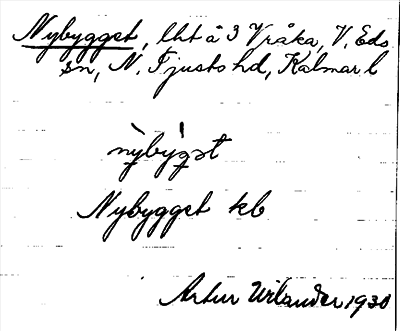 Nybygget, lht å 3 Vråka, V. Eds
sn, N. Tjusts hd, Kalmar l
nỳbýgət
Nybygget kb
Artur Wilander 1930